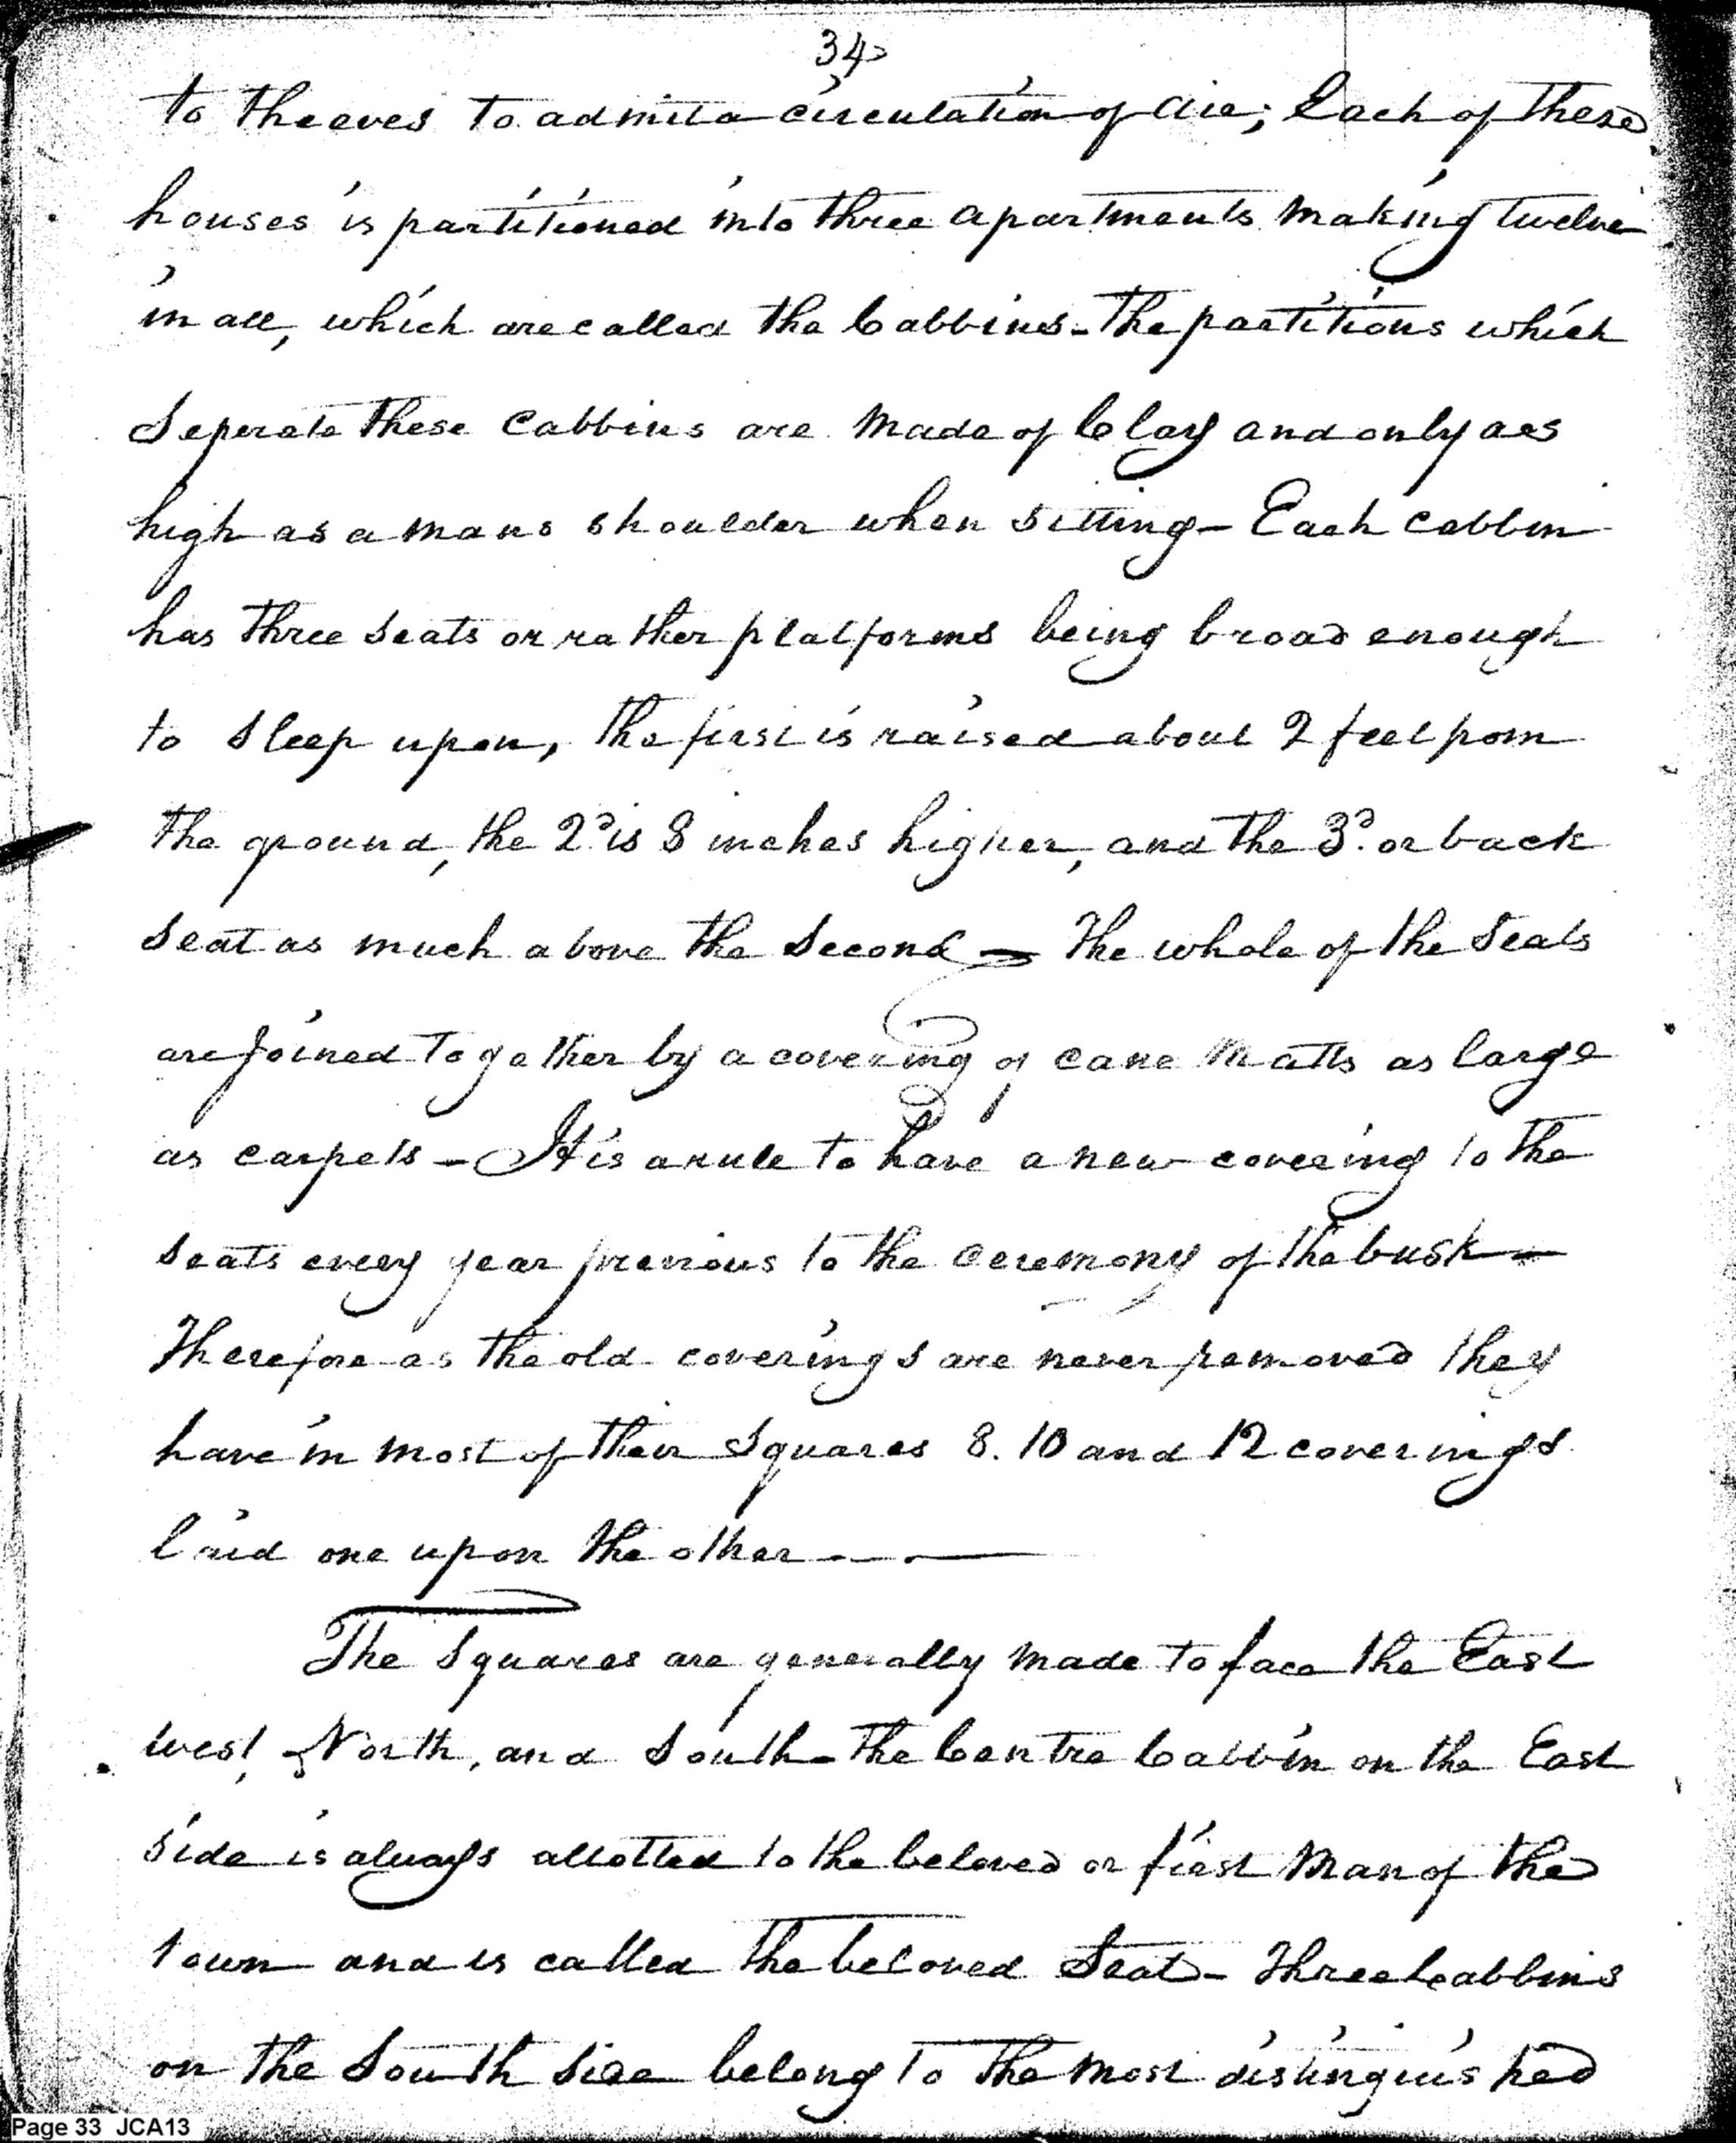 34
to the eves to admit a circulation of air; Each of these
houses is partitioned into three apartments making twelve
in all, which are called the Cabbins - The partitions which
Seperate these Cabbins are made of Clay and only as
high as a mans shoulder when sitting - Each cabbin
has three seats or rather platforms being broad enough
to sleep upon, the first is raised about 2 feet from
the ground, the 2d. is 8 inches higher, and the 3d. or back
seat as much above the second - The whole of the seats
are joined together by a covering of cane matts as large
as carpets - It is a rule to have a new covering to the
seats every year previous to the ceremony of the busk -
Therefore as the old coverings are never removed they
have in most of their Squares 8. 10 and 12 coverings
laid one upon the other - -
The Squares are generally made to face the East
west, North, and South - The Centre Cabbin on the East
side is always allotted to the beloved or first Man of the
town and is called the beloved Seat - Three Cabbins
on the South side belong to the most distinguished
Page 33 JCA13